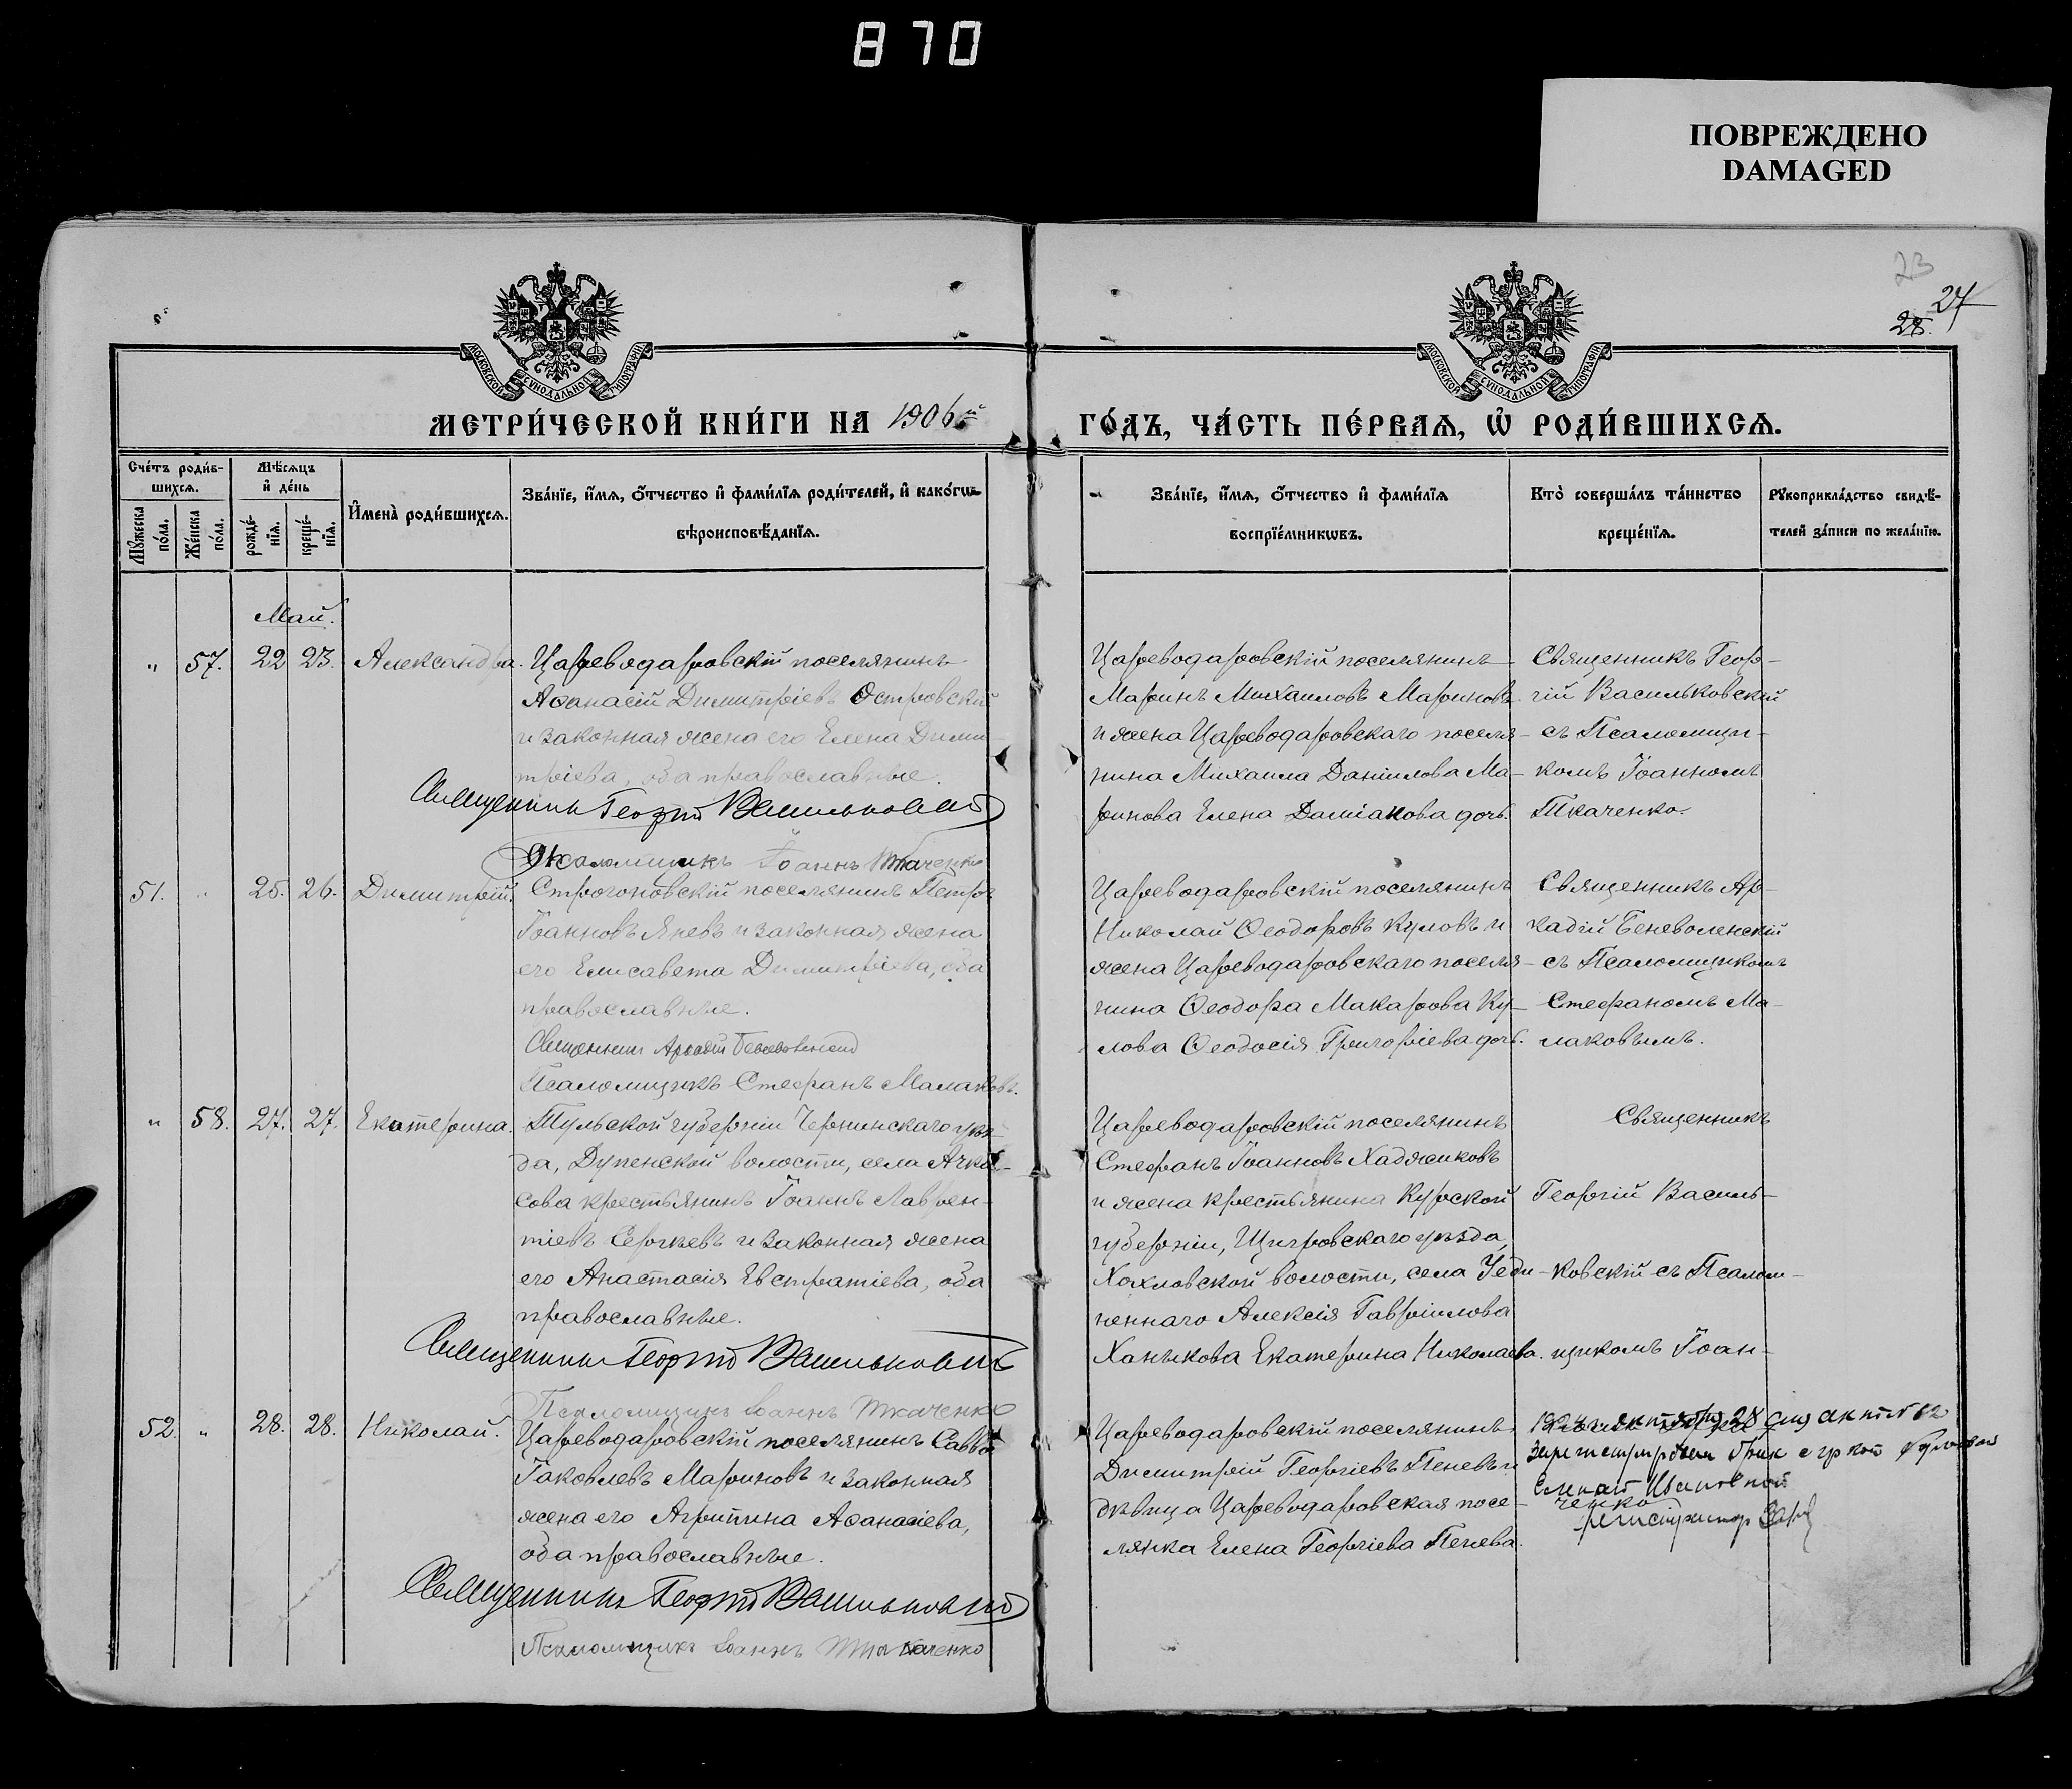 870
ПОВРЕЖДЕНО
DAMAGED
23
27
28.
МОСКОВСКОЙ СѴНОДАЛЬНОЙ ТИПОГРАФІИ
МОСКОВСКОЙ СѴНОДАЛЬНОЙ ТИПОГРАФІИ
МЕТРИ́ЧЕСКОЙ КНИ́ГИ НА 1906й
ГО́ДЪ, ЧА́СТЬ ПЕ́РВАѦ, Ѡ҆ РОДИ́ВШИХСѦ.
Сче́тъ роди́в-
шихсѧ.
Мѣ́сѧцъ
и҆ де́нь
И҆мена̀ роди́вшихсѧ.
Зва́нїе, и҆́мѧ, ѻ҆́тчество и҆ фами́лїѧ роди́телей, и҆ како́гѡ
вѣроисповѣ́данїѧ.
Мꙋ́жеска
по́ла.
Же́нска
по́ла.
рожде́-
нїѧ.
креще́-
нїѧ.
Зва́нїе, и҆́мѧ, ѻ҆́тчество и҆ фами́лїѧ
воспрїе́мникѡвъ.
Кто̀ соверша́лъ та́инство
креще́нїѧ.
Рꙋкоприкла́дство свидѣ́-
телей за́писи по жела́нїю.
Май.
" 57. 22 23. Александра. Цареводаровскій поселянинъ
Аѳанасій Димитріевъ Островскій
и законная жена его Елена Дими-
тріева, оба православные.
Священникъ Георгій Васильковскій
Псаломщикъ Іоаннъ Ткаченко
Цареводаровскій поселянинъ
Маринъ Михаиловъ Мариновъ
и жена Цареводаровскаго поселя-
нина Михаила Даніилова Ма-
ринова Елена Даміанова дочь.
Священникъ Геор-
гій Васильковскій
съ Псаломщи-
комъ Іоанномъ
Ткаченко.
51. " 25. 26. Димитрій. Строгоновскій поселянинъ Петръ
Іоанновъ Яневъ и законная жена
его Елисавета Димитріева, оба
православные.
Священникъ Аркадій Беневоленскій
Псаломщикъ Стефанъ Малаковъ.
Цареводаровскій поселянинъ
Николай Ѳеодоровъ Куловъ и
жена Цареводаровскаго поселя-
нина Ѳеодора Макарова Ку-
лова Ѳеодосія Григоріева дочь.
Священникъ Ар-
кадій Беневоленскій
съ Псаломщикомъ
Стефаномъ Ма-
лаковымъ.
" 58. 27. 27. Екатерина. Тульской губерніи Чернинскаго уѣз-
да, Дупенской волости, села Ачка-
сова крестьянинъ Іоаннъ Лаврен-
тіевъ Сергѣевъ и законная жена
его Анастасія Евстратіева, оба
православные.
Священникъ Георгій Васильковскій
Псаломщикъ Іоаннъ Ткаченко
Цареводаровскій поселянинъ
Стефанъ Іоанновъ Хаджиковъ
и жена крестьянина Курской
губерніи, Щигровскаго уѣзда,
Хохловской волости, села Уеди-
неннаго Алексія Гавріилова
Ханыкова Екатерина Николаева.
Священникъ
Георгій Василь-
ковскій съ Псалом-
щикомъ Іоан-
ченко
52. " 28. 28. Николай. Цареводаровскій поселянинъ Савва
Іаковлевъ Мариновъ и законная
жена его Агрипина Аѳанасіева,
оба православные.
Священникъ Георгій Васильковскій
Псаломщикъ Іоаннъ Ткаченко
Цареводаровскій поселянинъ
Димитрій Георгіевъ Пеневъ и
дѣвица Цареводаровская посе-
лянка Елена Георгіева Пенева.
октября 28 дня
брак с гр кой
Еленой Ивановной
регистратор